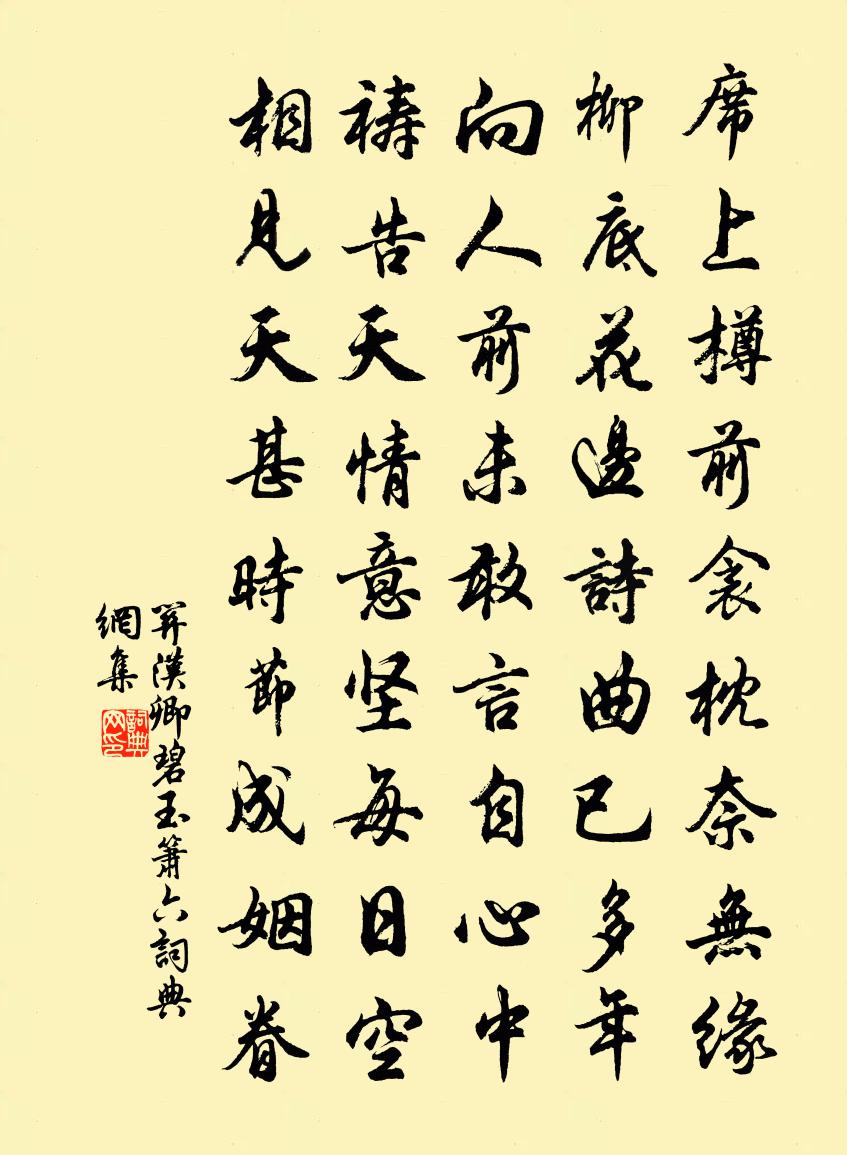 席上樽前衾枕奈無緣
柳底花邊詩曲已多年
向人前未敢言自心中
祷告天情意坚每日空
相見天甚時節成姻眷
關漢卿碧玉簫六詞典
網集
詞典
网印